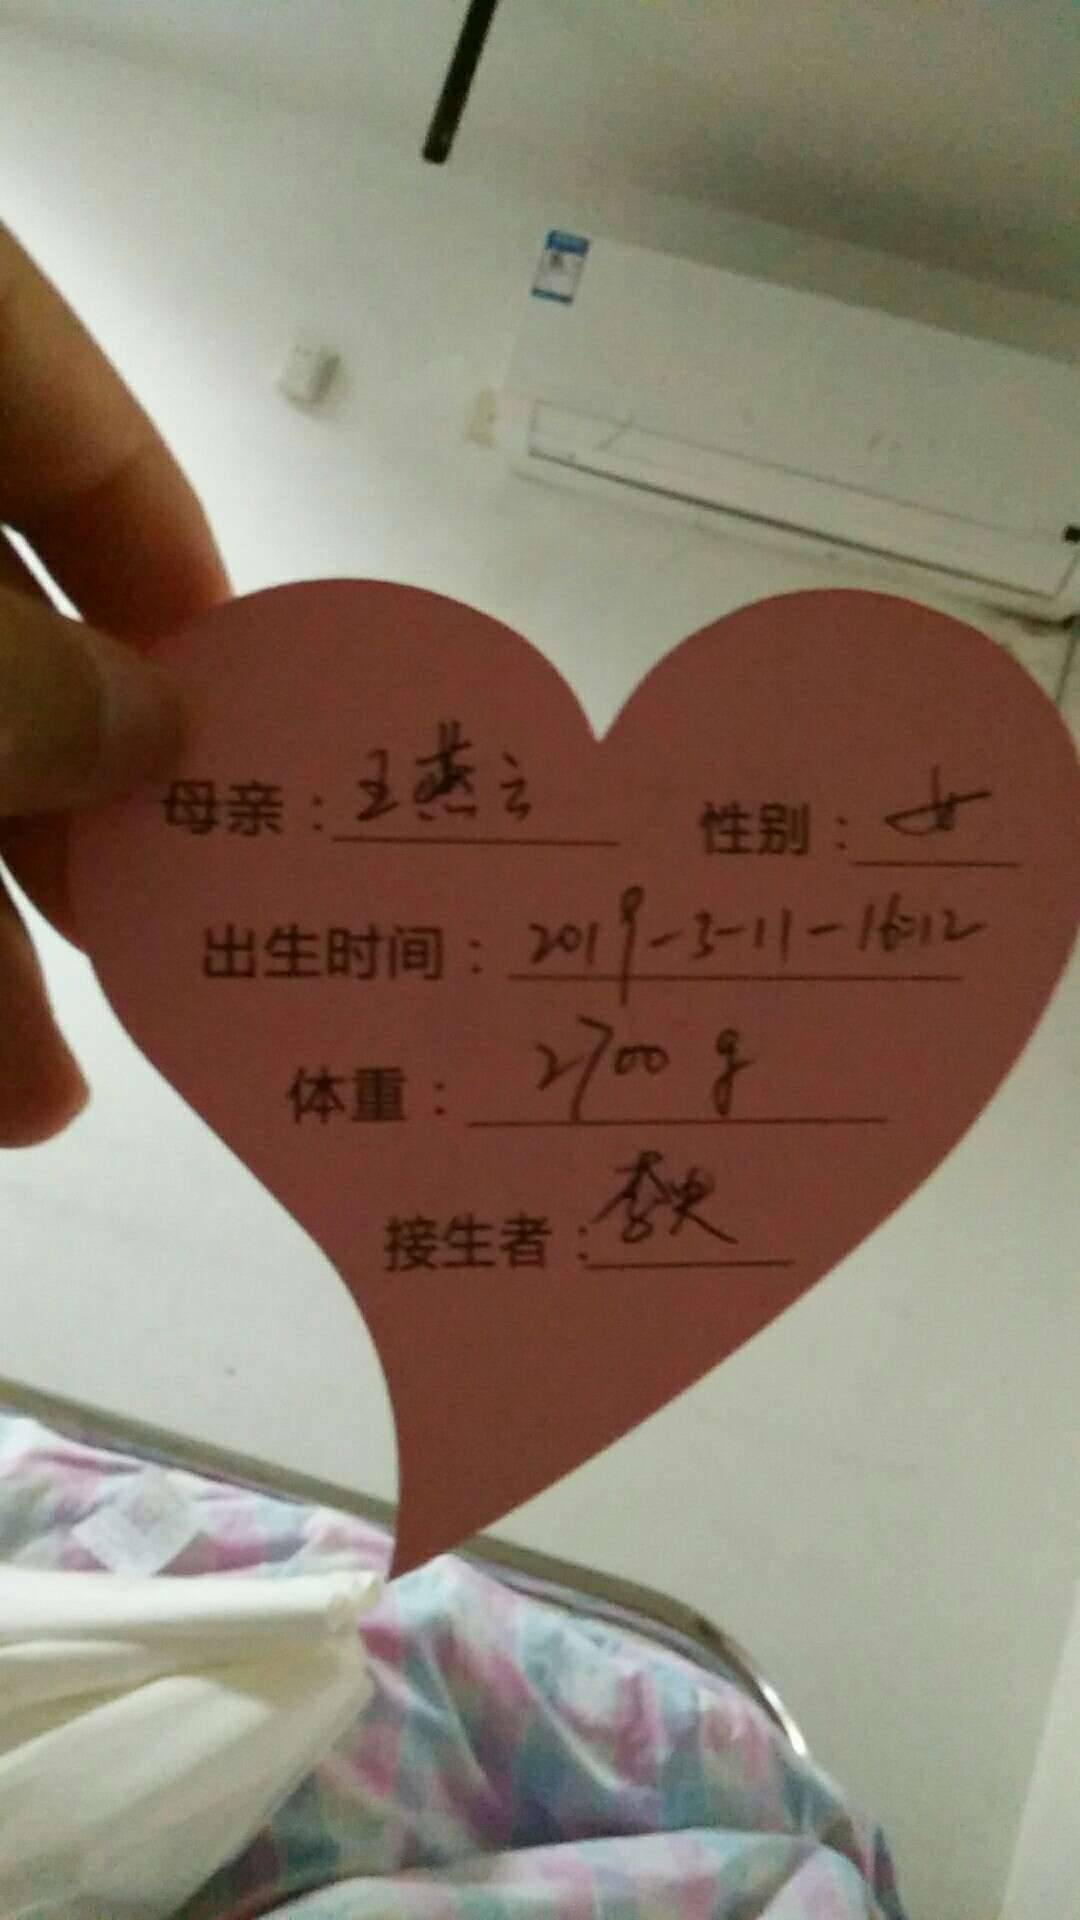 母亲：王燕云 性别：女
出生时间：2019-3-11-16:12
体重：2700 g
接生者：李央